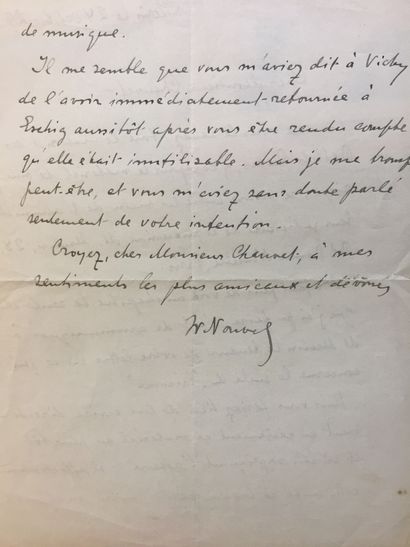 de musique.
Il me semble que vous m'aviez dit à Vichy
de l'avoir immédiatement retournée à
Eschig aussitôt après vous être rendu compte
qu'elle était inutilisable. Mais je me tromp
peut-être, et vous m'aviez sans doute parlé
seulement de votre intention.
Croyez, cher Monsieur Chauvet, à mes
sentiments les plus amicaux et dévoués
W. Nouvel